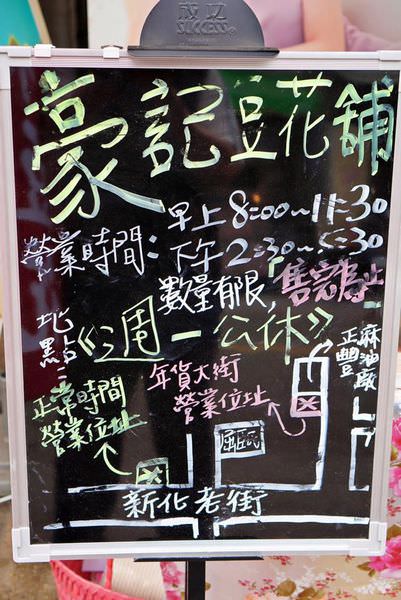 成功
SUCCESS
豪記豆花舖
營業時間：早上8:00~11:30
下午2:30~5:30
數量有限，售完為止
地點：《週一公休》
正豐麻油廠
年貨大街
營業位址
正常時間
營業位址
新化老街